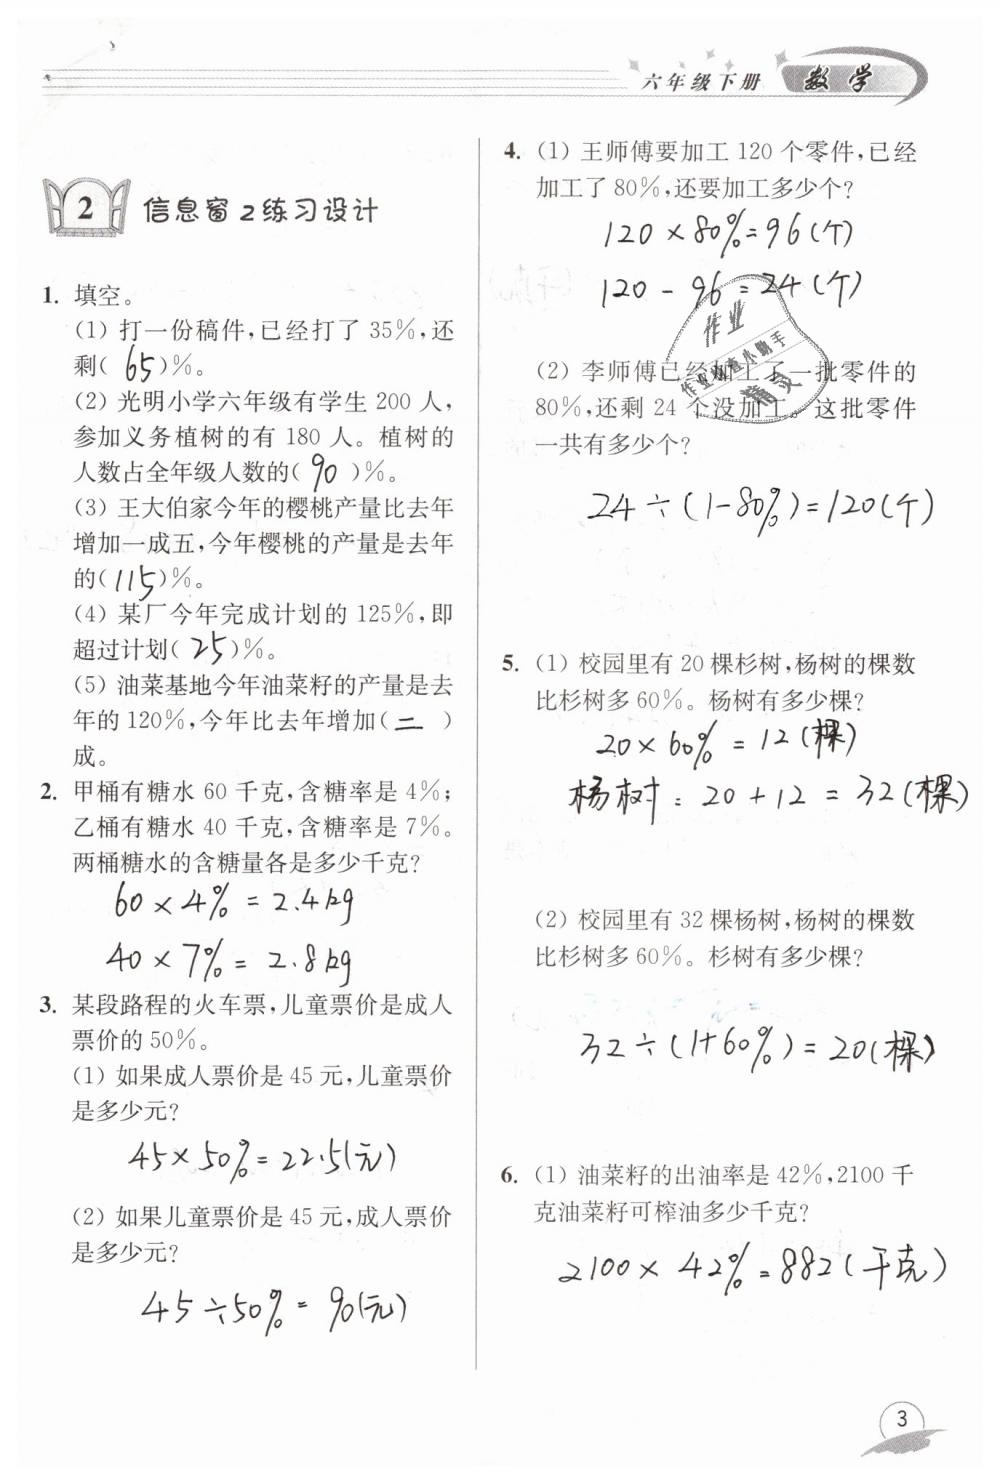 六年级下册 数学
2 信息窗2练习设计
1. 填空。
(1) 打一份稿件,已经打了35%,还
剩( 65 )%。
(2) 光明小学六年级有学生200人,
参加义务植树的有180人。植树的
人数占全年级人数的( 90 )%。
(3) 王大伯家今年的樱桃产量比去年
增加一成五,今年樱桃的产量是去年
的( 115 )%。
(4) 某厂今年完成计划的125%,即
超过计划( 25 )%。
(5) 油菜基地今年油菜籽的产量是去
年的120%,今年比去年增加( 二 )
成。
2. 甲桶有糖水60千克,含糖率是4%;
乙桶有糖水40千克,含糖率是7%。
两桶糖水的含糖量各是多少千克?
60×4% = 2.4kg
40×7% = 2.8kg
3. 某段路程的火车票,儿童票价是成人
票价的50%。
(1) 如果成人票价是45元,儿童票价
是多少元?
45×50% = 22.5(元)
(2) 如果儿童票价是45元,成人票价
是多少元?
45÷50% = 90(元)
4. (1) 王师傅要加工120个零件,已经
加工了80%,还要加工多少个?
120×80% = 96(个)
120 - 96 = 24(个)
作业
作业检查小助手
精灵
(2) 李师傅已经加工了一批零件的
80%,还剩24个没加工。这批零件
一共有多少个?
24÷(1-80%) = 120(个)
5. (1) 校园里有20棵杉树,杨树的棵数
比杉树多60%。杨树有多少棵?
20×60% = 12(棵)
杨树: 20+12 = 32(棵)
(2) 校园里有32棵杨树,杨树的棵数
比杉树多60%。杉树有多少棵?
32÷(1+60%) = 20(棵)
6. (1) 油菜籽的出油率是42%,2100千
克油菜籽可榨油多少千克?
2100×42% = 882(千克)
3